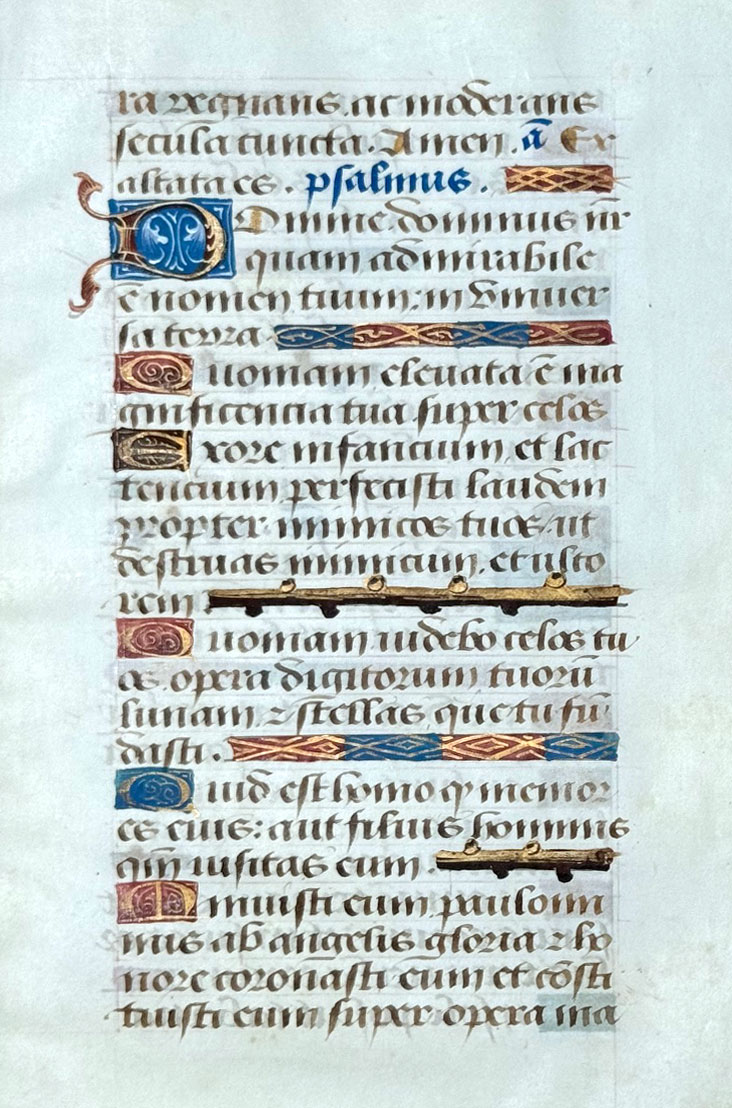 ra regnans. ac moderans
secula cuncta. Amen. a̅ Ex
altata es. psalmus.
Domine dominus nr̅
quam admirabile
e̅ nomen tuum: in vniuer
sa terra.
Quoniam eleuata e̅ ma
gnificencia tua super celos
Exore infancium, et lac
tencium perfecisti laudem
propter inimicos tuos. ut
destruas inimicum, et ulto
rem
Quoniam uidebo celos tu
os. opera digitorum tuoru̅
lunam, ⁊ stellas, que tu fu̅
dasti.
Quid est homo ꝙ memor
es eius: aut filius hominis
qm̅ uisitas eum.
Minuisti eum paulomi
nus ab angelis gloria ⁊ ho
nore coronasti eum et co̅sti
tuisti eum super opera ma